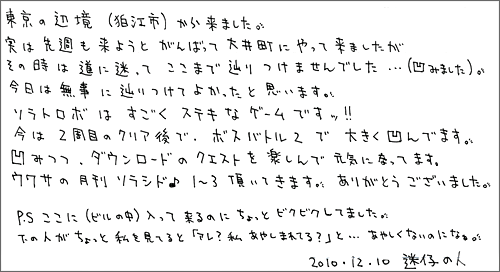 東京の辺境(狛江市)から来ました。
実は先週も来ようとがんばって大井町にやって来ましたが
その時は道に迷ってここまで辿りつけませんでした…(凹みました)。
今日は無事に辿りつけてよかったと思います。
ソラトロボはすごくステキなゲームですッ!!
今は2周目のクリア後で、ボスバトル2で大きく凹んでます。
凹みつつ、ダウンロードのクエストを楽しんで元気になってます。
ウワサの月刊ソラシド♪1~3頂いてきます。ありがとうございました。
P.S ここに(ビルの中)入って来るのにちょっとビクビクしてました。
下の人がちょっと私を見てると「アレ?私あやしまれてる?」と…あやしくないのになぁ。
2010.12.10 迷仔の人